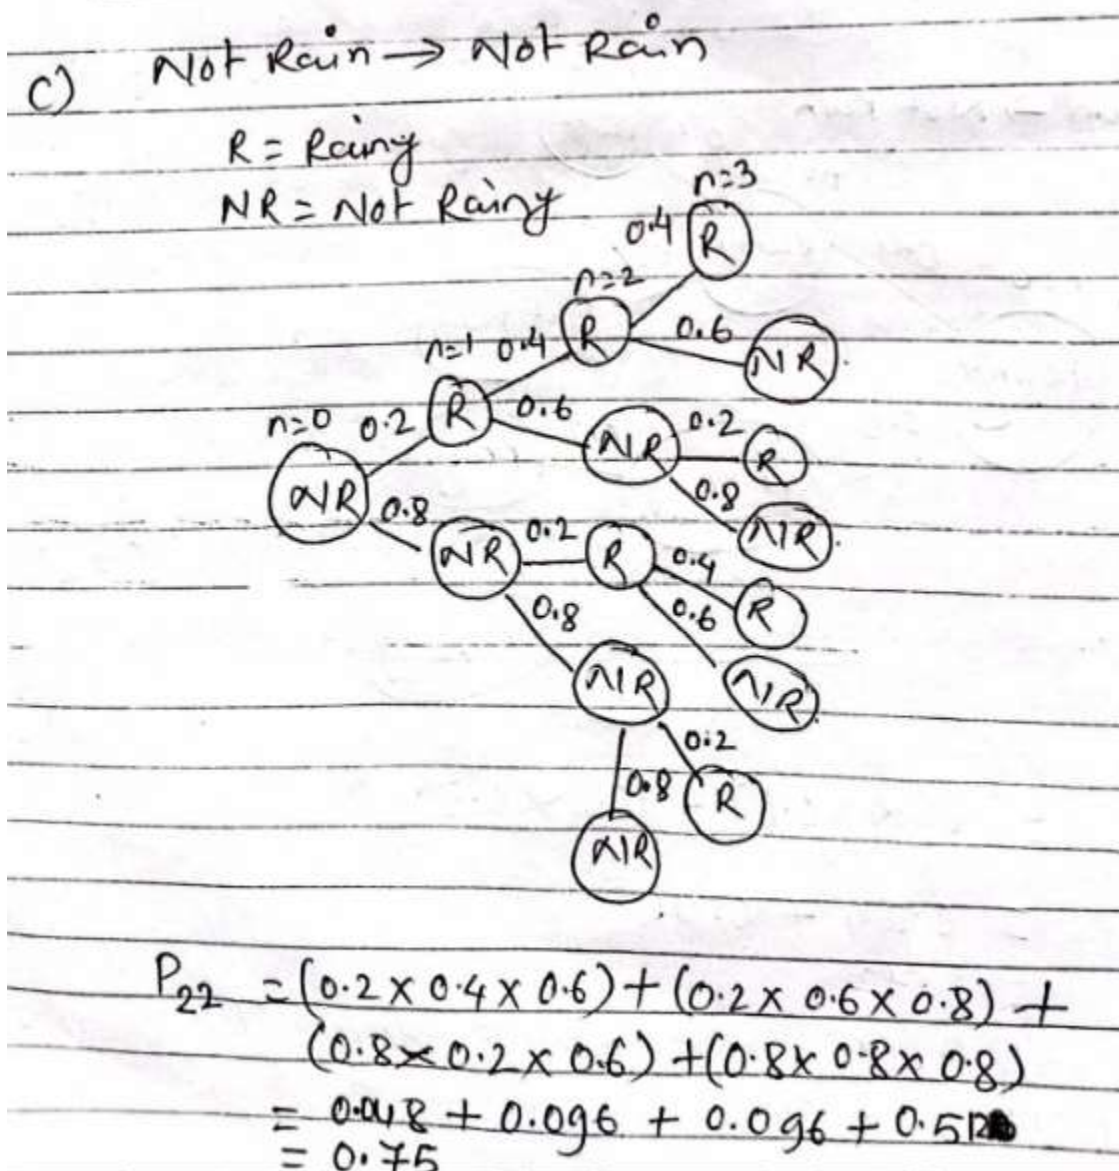 c) Not Rain → Not Rain
R = Rainy
NR = Not Rainy
n=3
0.4 R
n=2
R 0.6 NR
n=1 0.4
n=0 0.2 R 0.6 NR 0.2 R
NR 0.8 0.8 NR
NR 0.2 R 0.4 R
0.8 0.6
NR NR
0.2
0.8 R
NR
P22 = (0.2 x 0.4 x 0.6) + (0.2 x 0.6 x 0.8) +
(0.8 x 0.2 x 0.6) + (0.8 x 0.8 x 0.8)
= 0.048 + 0.096 + 0.096 + 0.512
= 0.75